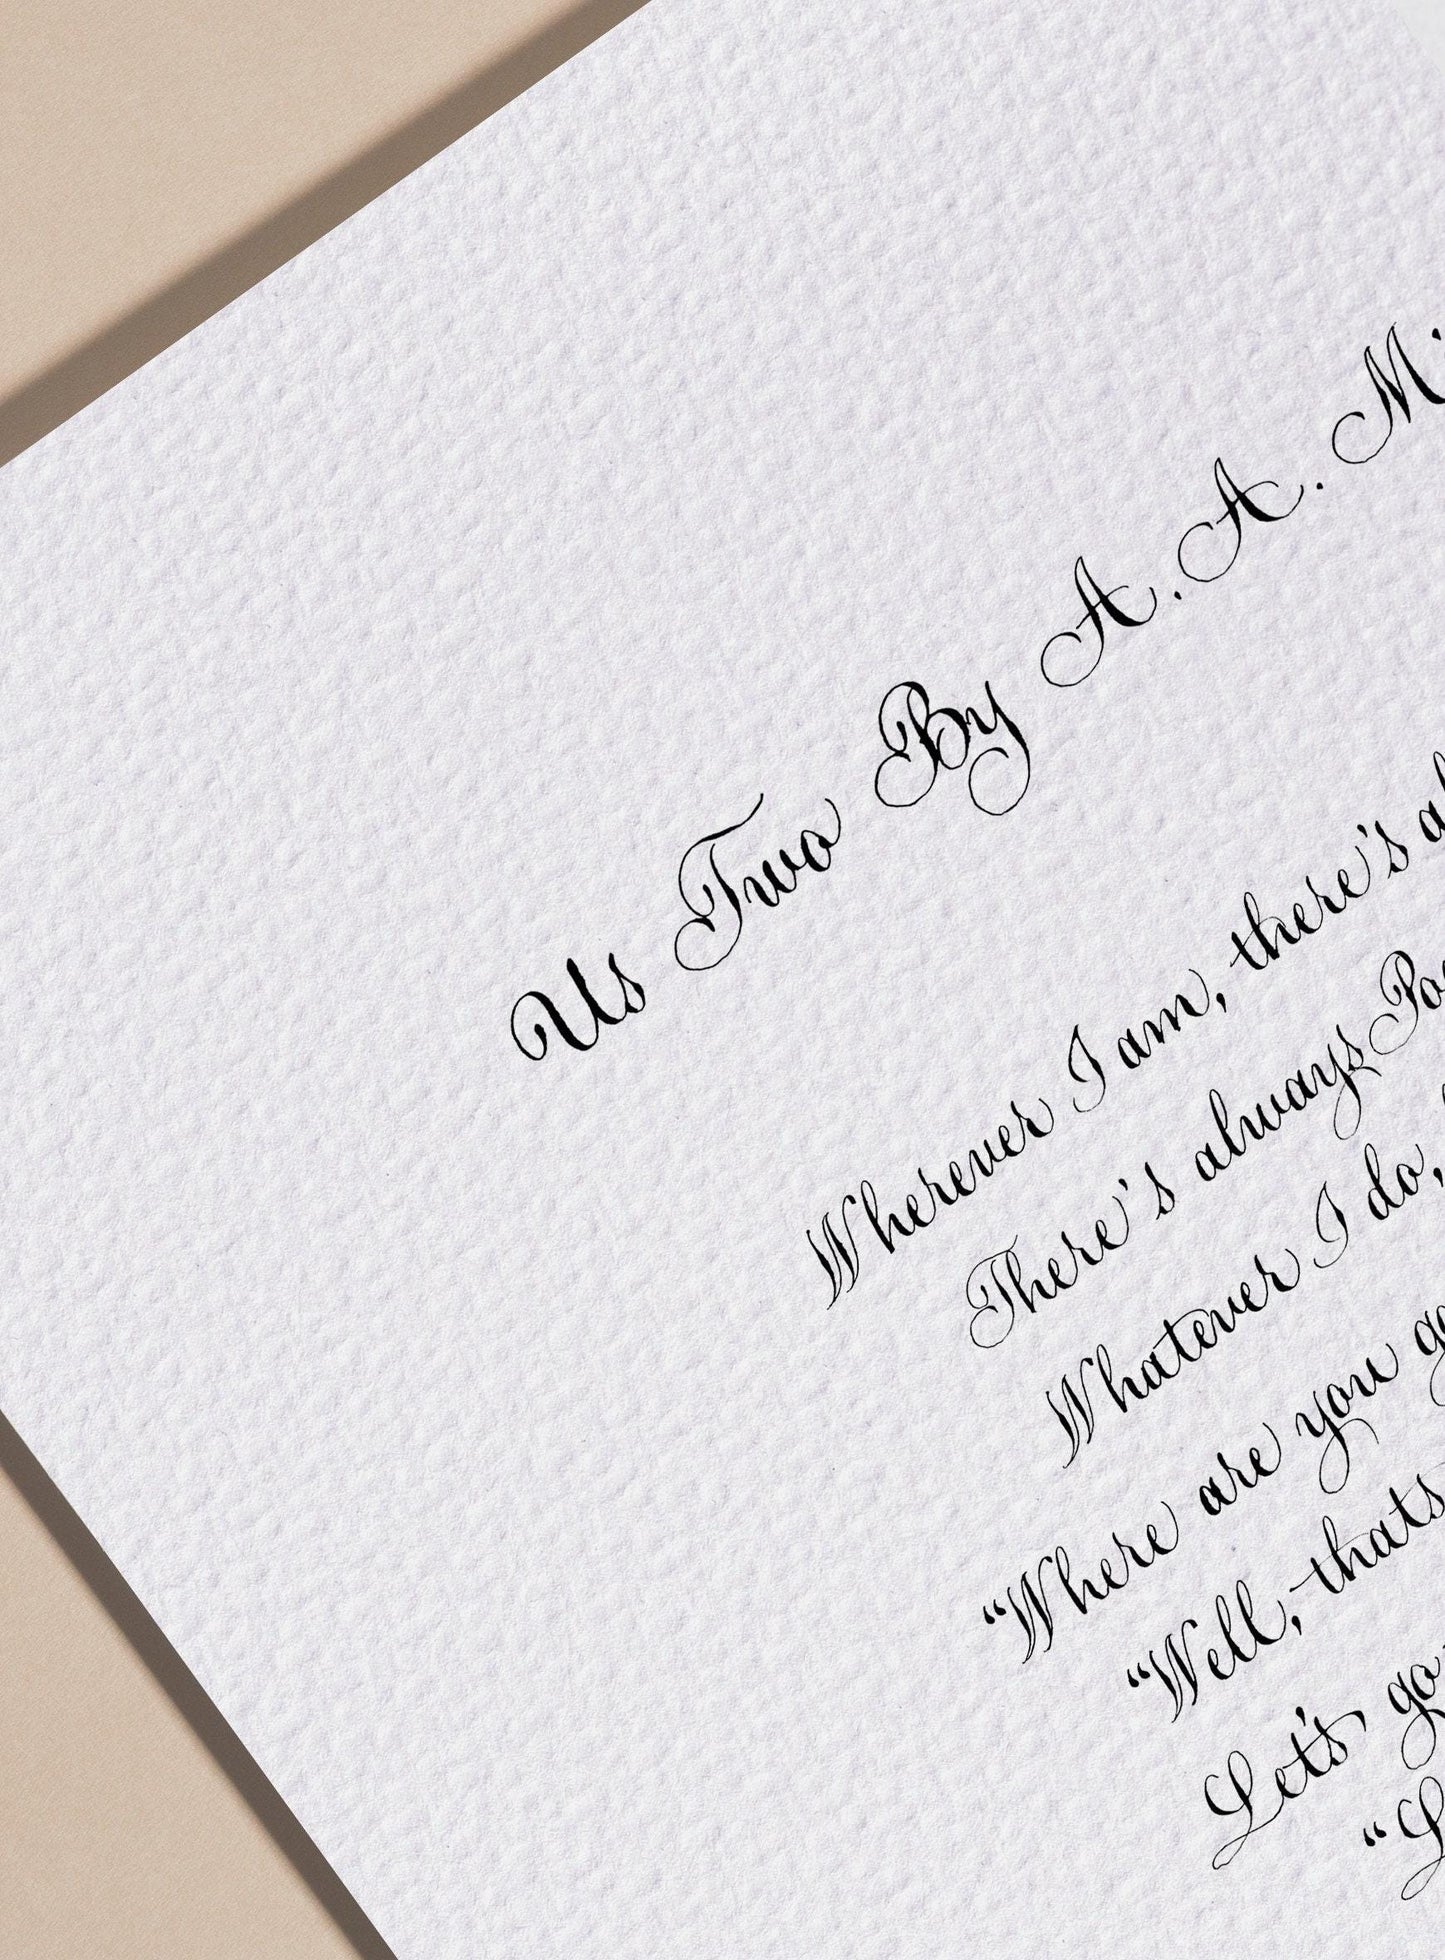 Us Two By A. A. Mi
Wherever I am, there's al
There's always Poo
Whatever I do,
"Where are you go
"Well, thats
Let's go
"L